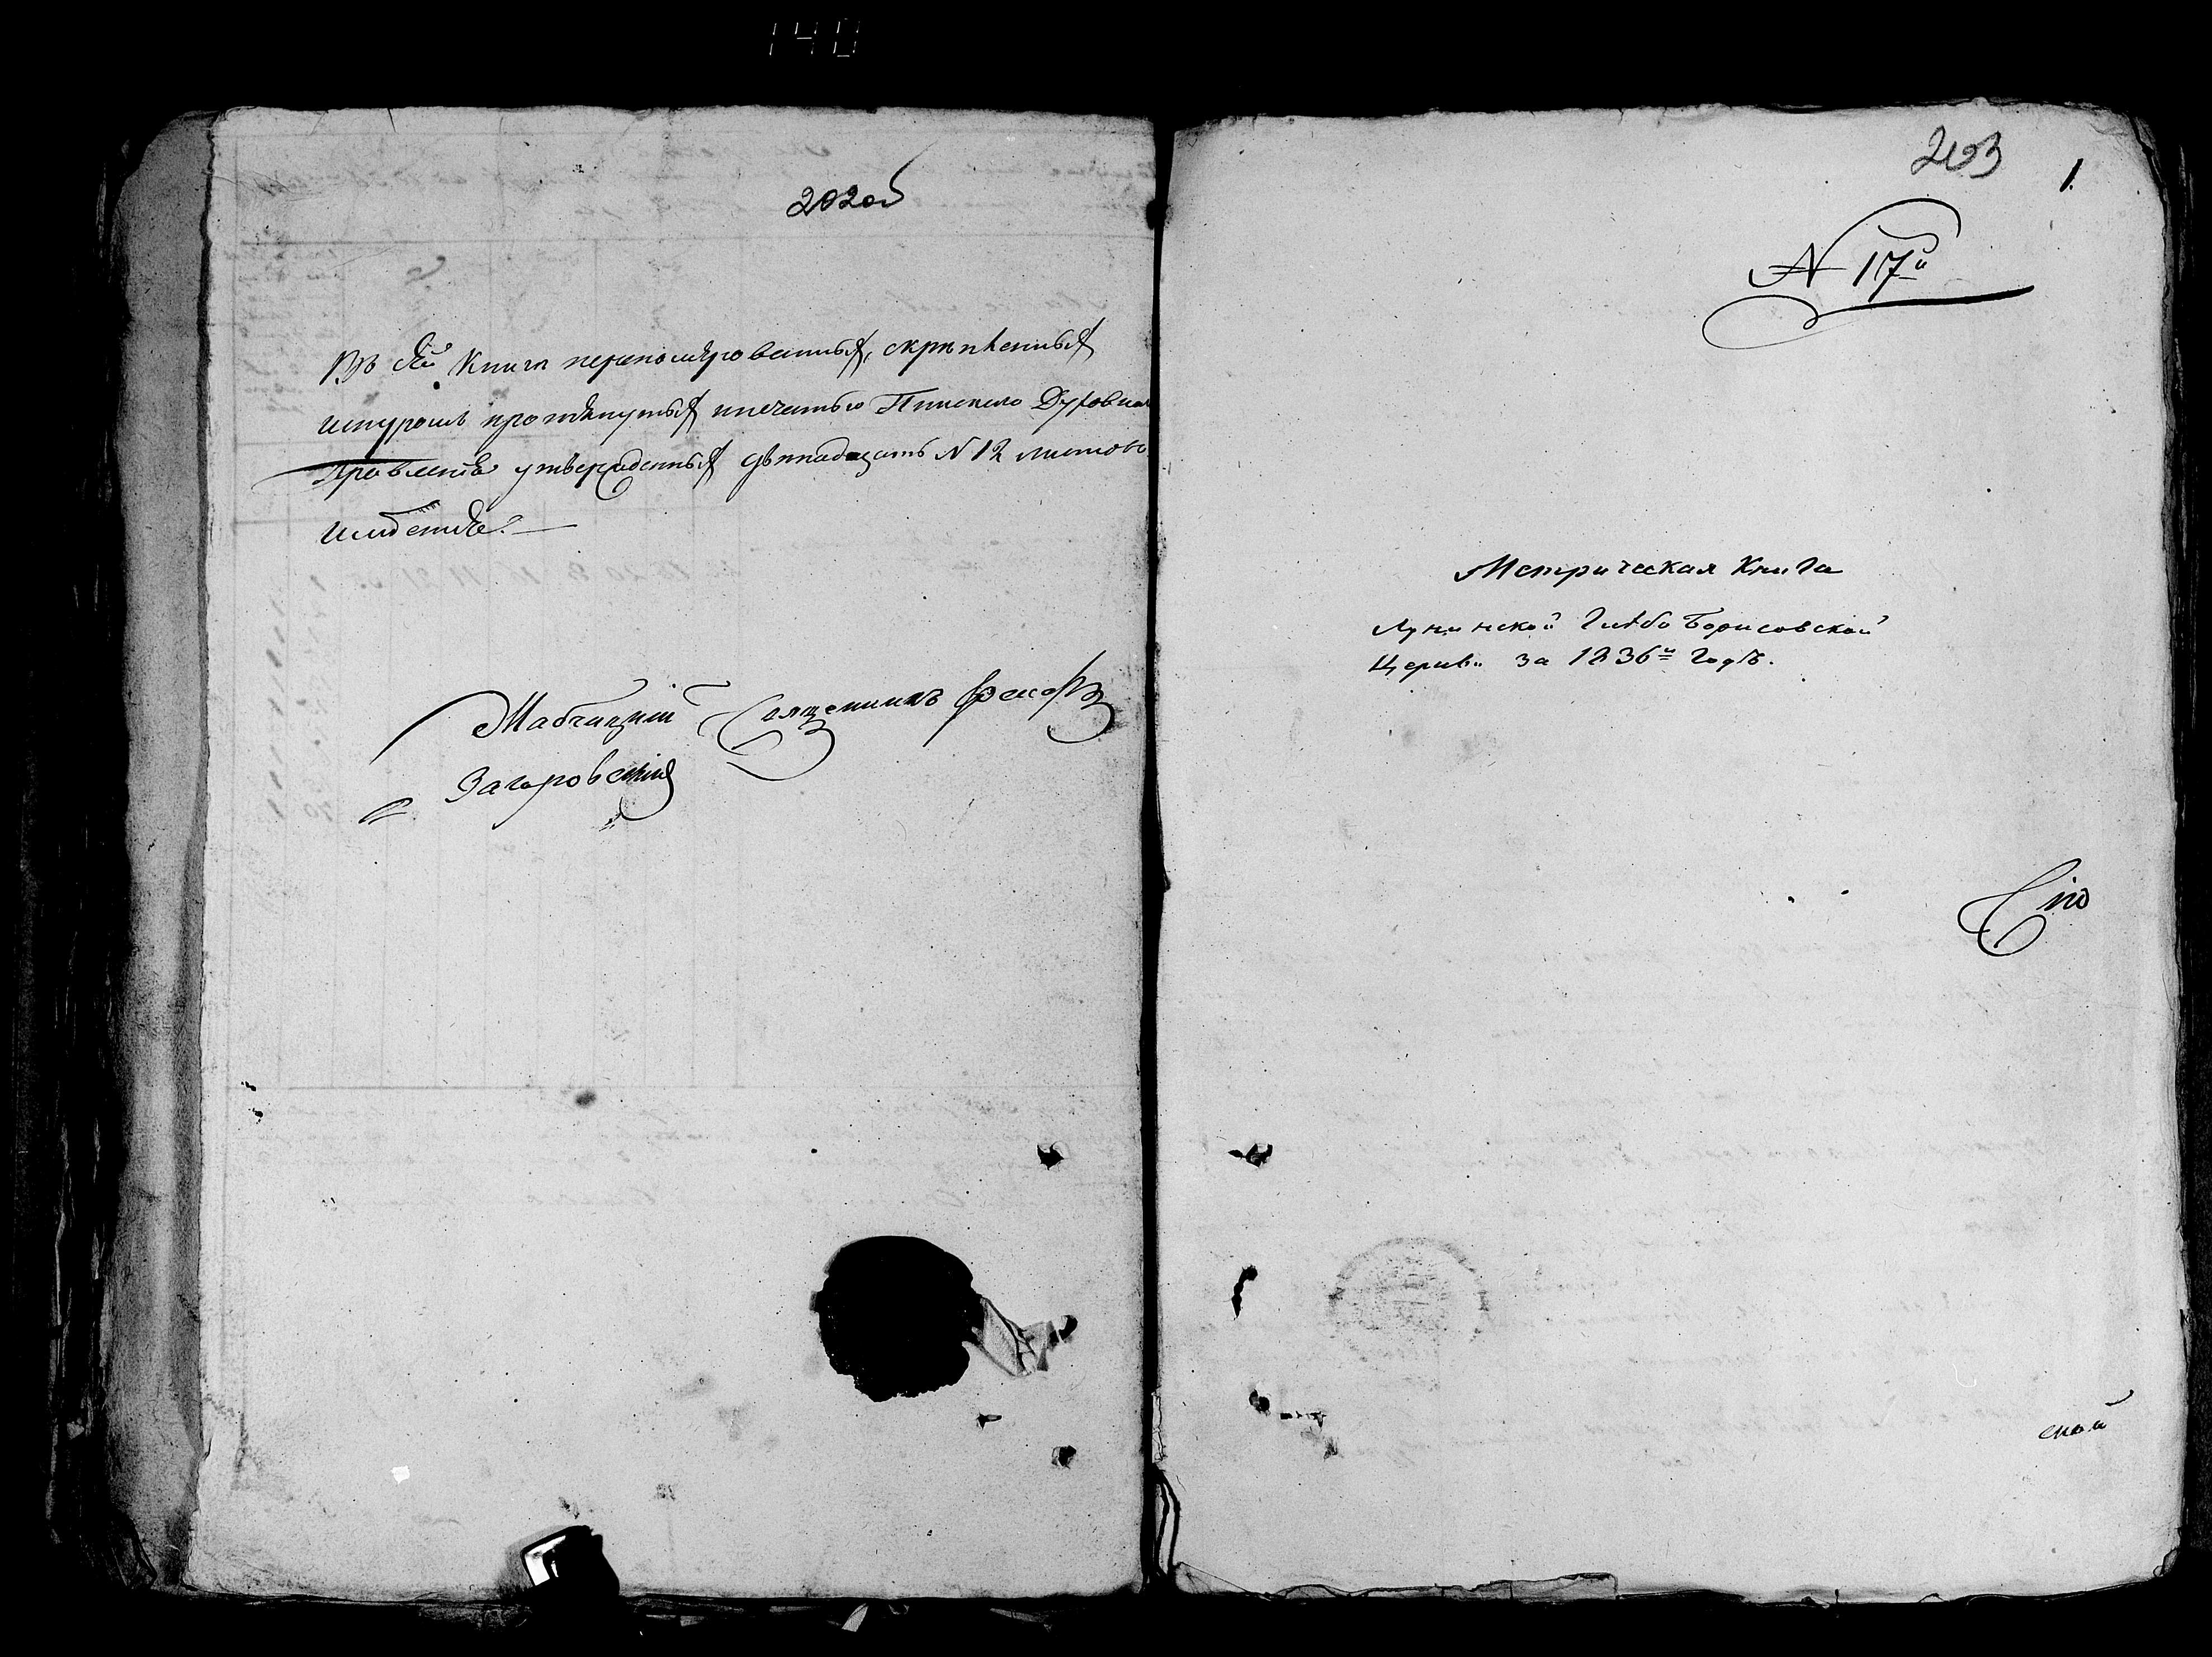 140
202об
Въ сей книгѣ перенумерованныхъ, скрѣпленныхъ
шнуромъ протянутыхъ и печатью Пинскаго Духовнаго
Правленія утвержденныхъ двѣнадцать N 12 листовъ
Священникъ
203
1.
N 17й
Метрическая Книга
Лунинской Глѣбо Борисовской
Церкви за 1836й Годъ.
Сію
ской